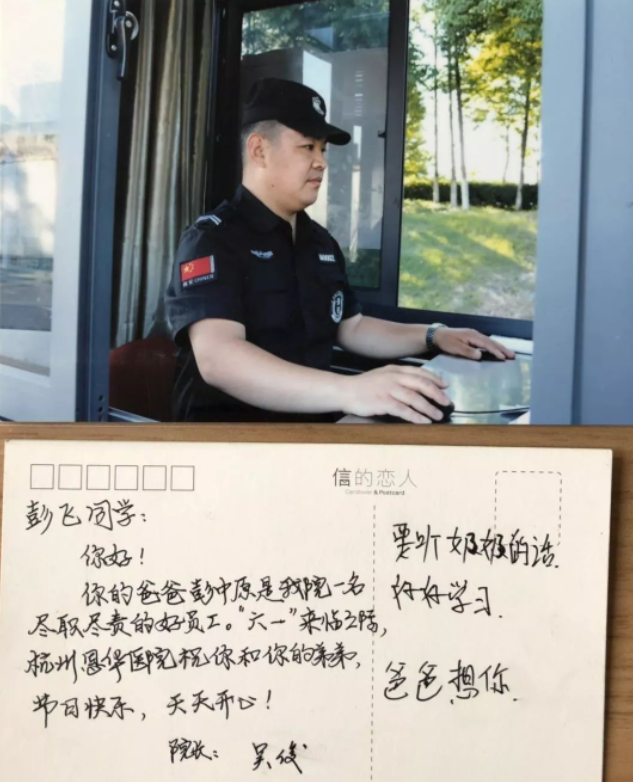 信的恋人
Cardlover & Postcard
彭飞同学：
你好！
你的爸爸彭中原是我院一名
尽职尽责的好员工。“六一”来临之际，
杭州恩华医院祝你和你的弟弟，
节日快乐，天天开心！
院长：吴俊
要听奶奶的话
好好学习.
爸爸想你.